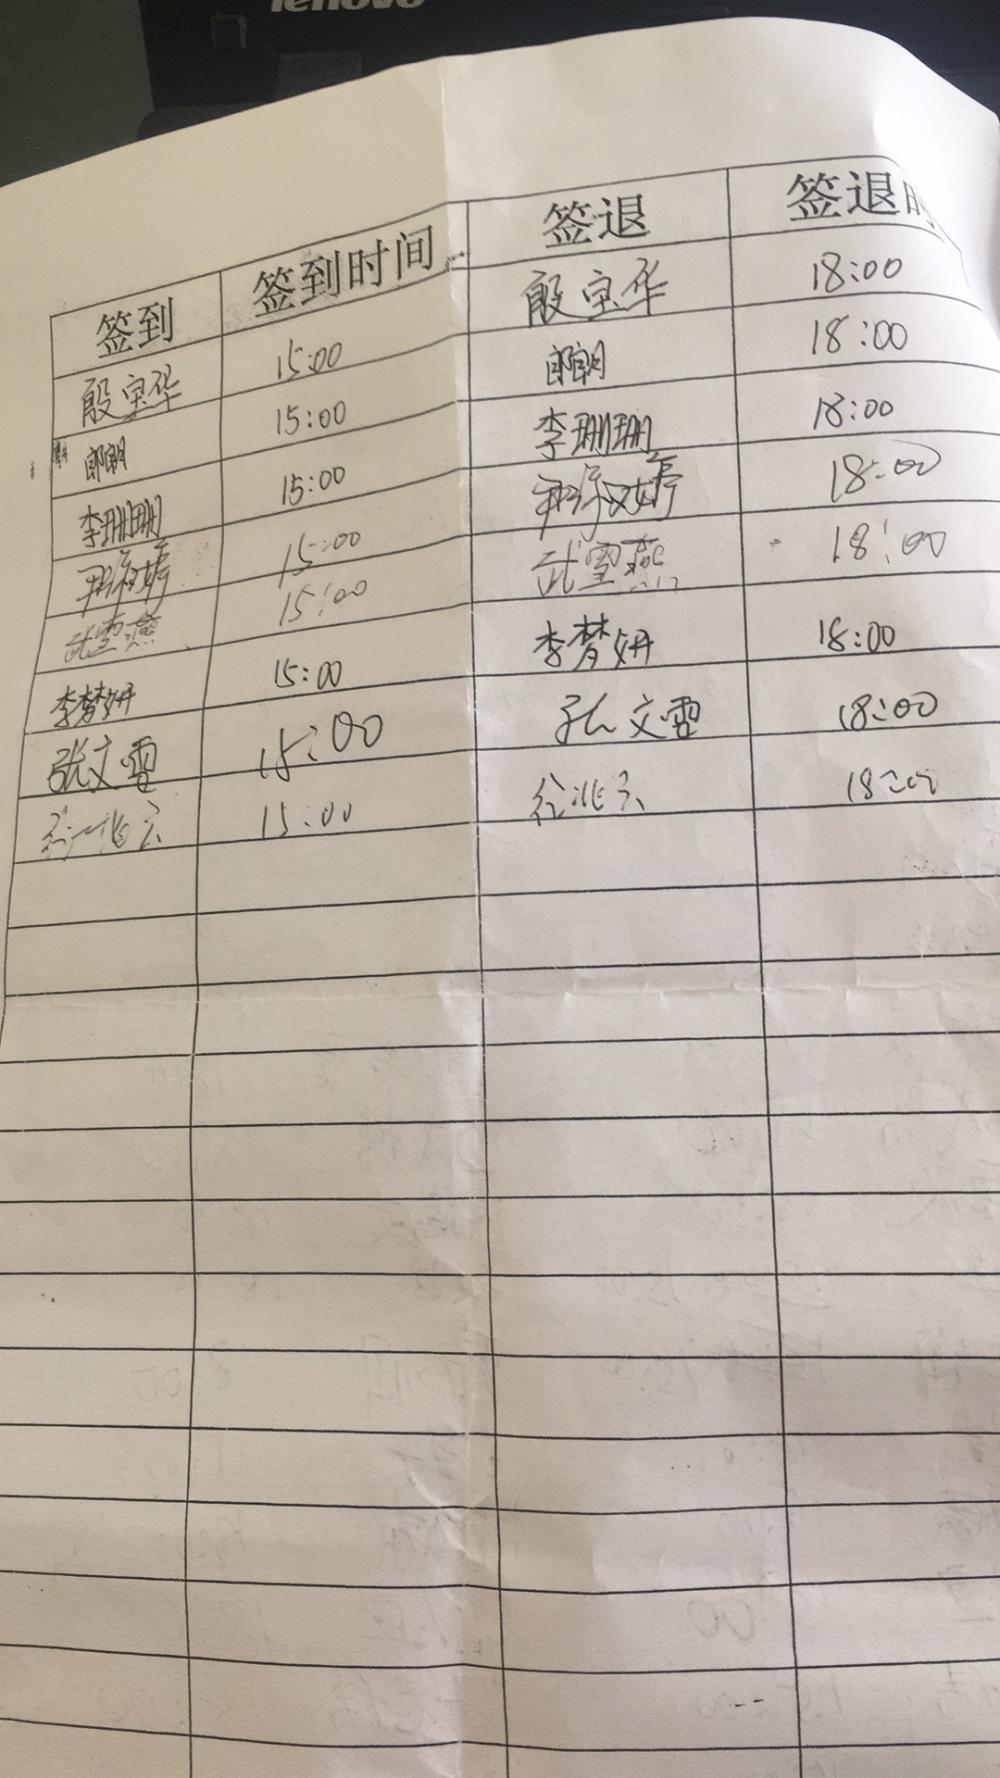 lenovo
签到 签到时间 签退 签退时
殷宝华 15:00 殷宝华 18:00
郎朗 15:00 郎朗 18:00
李珊珊 15:00 李珊珊 18:00
15:00 18:00
武雪燕 15:00 武雪燕 18:00
李梦妍 15:00 李梦妍 18:00
张文雪 15:00 张文雪 18:00
15:00 18:00